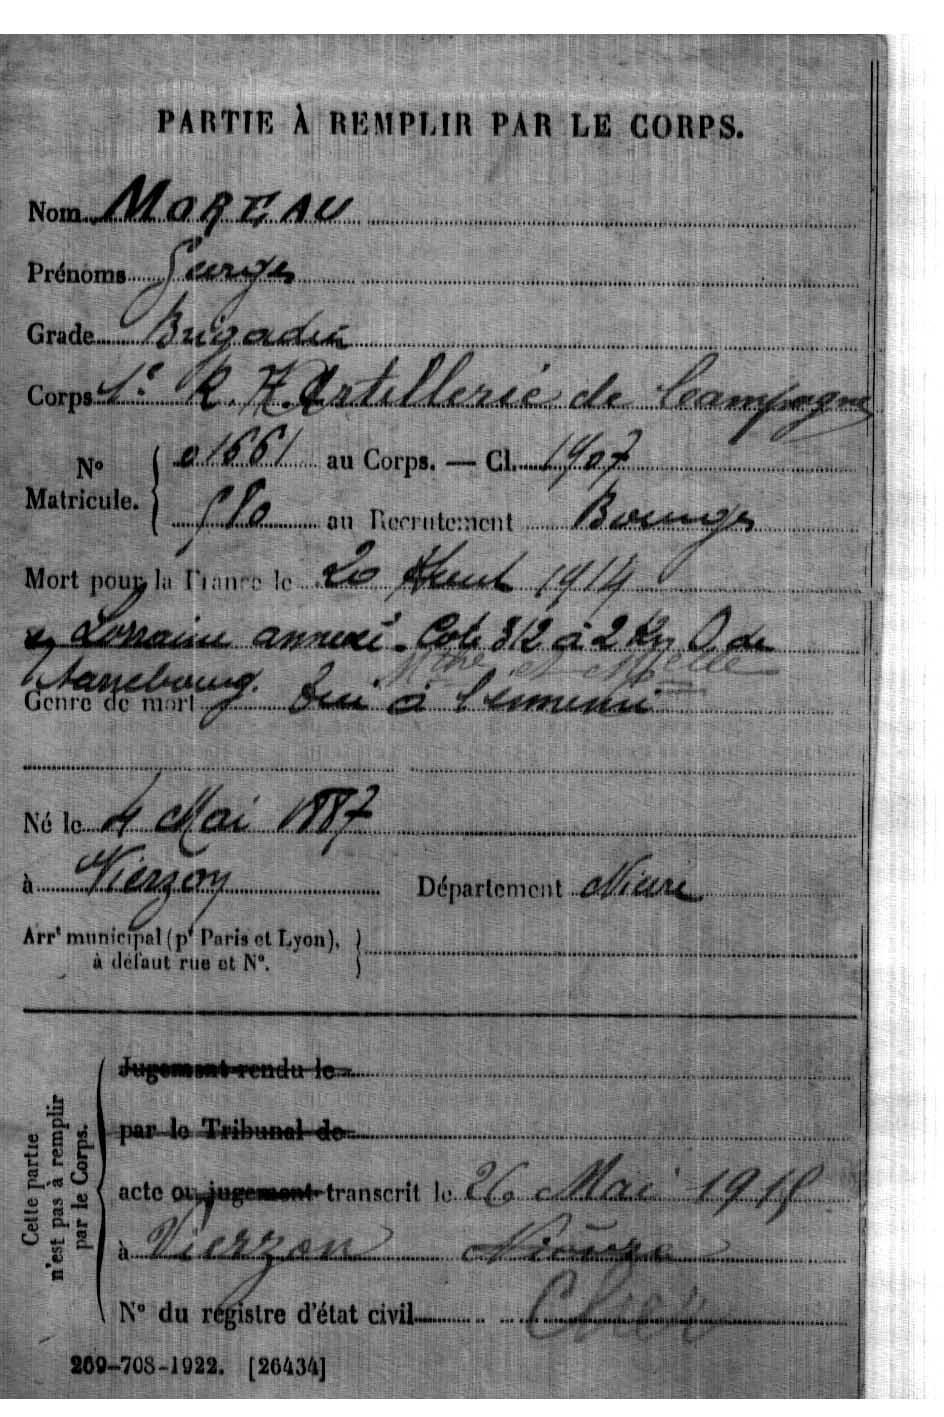 PARTIE À REMPLIR PAR LE CORPS.
Nom MOREAU
Prénoms Georges
Grade Brigadier
Corps 1e R. d'Artillerie de Campagne
N° Matricule. { 01661 au Corps. — Cl. 1907
580 au Recrutement Bourges
Mort pour la France le 20 Août 1914
Lorraine annexé. Cote 312 à 2 Km O. de
Sarrebourg. Mthe et Mselle
Genre de mort Tué à l'ennemi
Né le 4 Mai 1887
à Vierzon Département Nièvre
Arrt municipal (pr Paris et Lyon),
à défaut rue et N°.
Cette partie
n'est pas à remplir
par le Corps.
Jugement rendu le
par le Tribunal de
acte ou jugement transcrit le 26 Mai 1915
à Vierzon Nièvre
Cher
N° du registre d'état civil
269-708-1922. [26434]